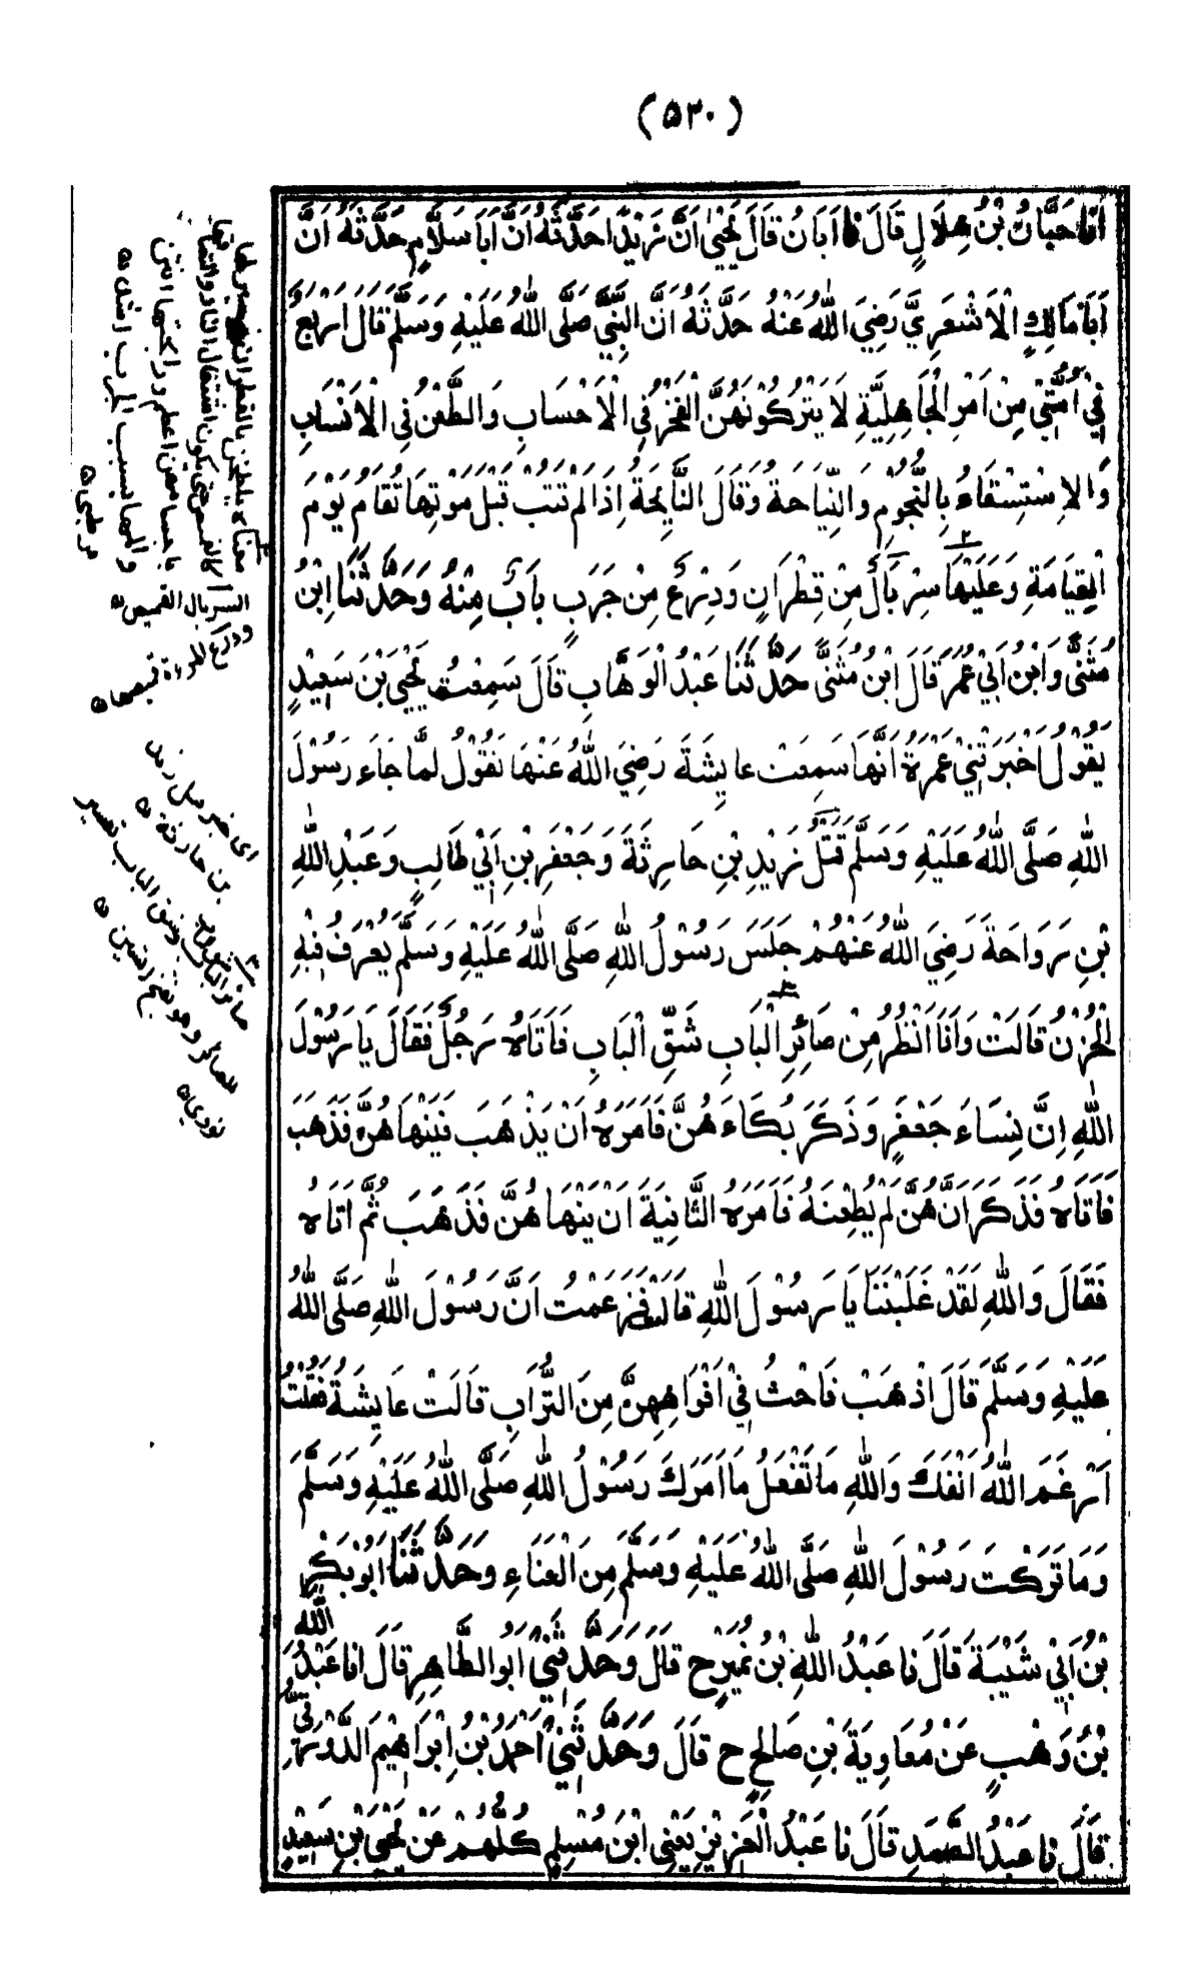 (۵۳۰)
انا حَبَّانُ بْنُ هِلَالٍ قَالَ نا اَبَانُ قَالَ يَحْيٰى اَنَّ زَيْدًا حَدَّثَهُ اَنَّ اَبَا سَلَّامٍ حَدَّثَهُ اَنَّ
اَبَا مَالِكٍ الْاَشْعَرِيَّ رَضِيَ اللّٰهُ عَنْهُ حَدَّثَهُ اَنَّ النَّبِيَّ صَلَّى اللّٰهُ عَلَيْهِ وَسَلَّمَ قَالَ اَرْبَعٌ
فِيْ اُمَّتِيْ مِنْ اَمْرِ الْجَاهِلِيَّةِ لَا يَتْرُكُوْنَهُنَّ الْفَخْرُ فِي الْاَحْسَابِ وَالطَّعْنُ فِي الْاَنْسَابِ
وَالْاِسْتِسْقَاءُ بِالنُّجُوْمِ وَالنِّيَاحَةُ وَقَالَ النَّائِحَةُ اِذَا لَمْ تَتُبْ قَبْلَ مَوْتِهَا تُقَامُ يَوْمَ
الْقِيَامَةِ وَعَلَيْهَا سِرْبَالٌ مِّنْ قِطْرَانٍ وَدِرْعٌ مِنْ جَرَبٍ بَابٌ مِنْهُ وَحَدَّثَنَا ابْنُ
مُثَنَّى وَابْنُ اَبِيْ عُمَرَ قَالَ ابْنُ مُثَنَّى حَدَّثَنَا عَبْدُ الْوَهَّابِ قَالَ سَمِعْتُ يَحْيَى بْنَ سَعِيْدٍ
يَقُوْلُ اَخْبَرَتْنِيْ عَمْرَةُ اَنَّهَا سَمِعَتْ عَايِشَةَ رَضِيَ اللّٰهُ عَنْهَا تَقُوْلُ لَمَّا جَاءَ رَسُوْلَ
اللّٰهِ صَلَّى اللّٰهُ عَلَيْهِ وَسَلَّمَ قَتْلُ زَيْدِ بْنِ حَارِثَةَ وَجَعْفَرِ بْنِ اَبِيْ طَالِبٍ وَعَبْدِ اللّٰهِ
بْنِ رَوَاحَةَ رَضِيَ اللّٰهُ عَنْهُمْ جَلَسَ رَسُوْلُ اللّٰهِ صَلَّى اللّٰهُ عَلَيْهِ وَسَلَّمَ يُعْرَفُ فِيْهِ
الْحُزْنُ قَالَتْ وَاَنَا اَنْظُرُ مِنْ صَائِرِ الْبَابِ شَقِّ الْبَابِ فَاَتَاهُ رَجُلٌ فَقَالَ يَا رَسُوْلَ
اللّٰهِ اِنَّ نِسَاءَ جَعْفَرٍ وَذَكَرَ بُكَاءَ هُنَّ فَاَمَرَهُ اَنْ يَذْهَبَ فَيَنْهَاهُنَّ فَذَهَبَ
فَاَتَاهُ فَذَكَرَ اَنَّهُنَّ لَمْ يُطِعْنَهُ فَاَمَرَهُ الثَّانِيَةَ اَنْ يَنْهَا هُنَّ فَذَهَبَ ثُمَّ اَتَاهُ
فَقَالَ وَاللّٰهِ لَقَدْ غَلَبْنَنَا يَا رَسُوْلَ اللّٰهِ قَالَتْ فَزَعَمْتُ اَنَّ رَسُوْلَ اللّٰهِ صَلَّى اللّٰهُ
عَلَيْهِ وَسَلَّمَ قَالَ اذْهَبْ فَاحْثُ فِيْ اَفْوَاهِهِنَّ مِنَ التُّرَابِ قَالَتْ عَايِشَةُ فَقُلْتُ
اَرْغَمَ اللّٰهُ اَنْفَكَ وَاللّٰهِ مَا تَفْعَلُ مَا اَمَرَكَ رَسُوْلُ اللّٰهِ صَلَّى اللّٰهُ عَلَيْهِ وَسَلَّمَ
وَمَا تَرَكْتَ رَسُوْلَ اللّٰهِ صَلَّى اللّٰهُ عَلَيْهِ وَسَلَّمَ مِنَ الْعَنَاءِ وَحَدَّثَنَا اَبُوْ بَكْرِ
بْنُ اَبِيْ شَيْبَةَ قَالَ نا عَبْدُ اللّٰهِ بْنُ نُمَيْرٍ ح قَالَ وَحَدَّثَنِيْ اَبُو الطَّاهِرِ قَالَ انا عَبْدُ اللّٰهِ
بْنُ وَهْبٍ عَنْ مُعَاوِيَةَ بْنِ صَالِحٍ ح قَالَ وَحَدَّثَنِيْ اَحْمَدُ بْنُ اِبْرَاهِيْمَ الدَّوْرَقِيُّ
قَالَ نا عَبْدُ الصَّمَدِ قَالَ نا عَبْدُ الْعَزِيْزِ يَعْنِي ابْنَ مُسْلِمٍ كُلُّهُمْ عَنْ يَحْيَى بْنِ سَعِيْدٍ
معناه يلطخن بالقطران
كالقميص حتى يكون اشتعال النار والتهابها
باجسامهن اعظم ورائحتها انتن
والمها بسبب الجرب اشد
قرطبي
السربال القميص
ودرع المرأة قميصها
اى خبر قتل زيد
بن حارثة
وشق الباب تفسير
للصائر وهو بفتح الشين
نووى